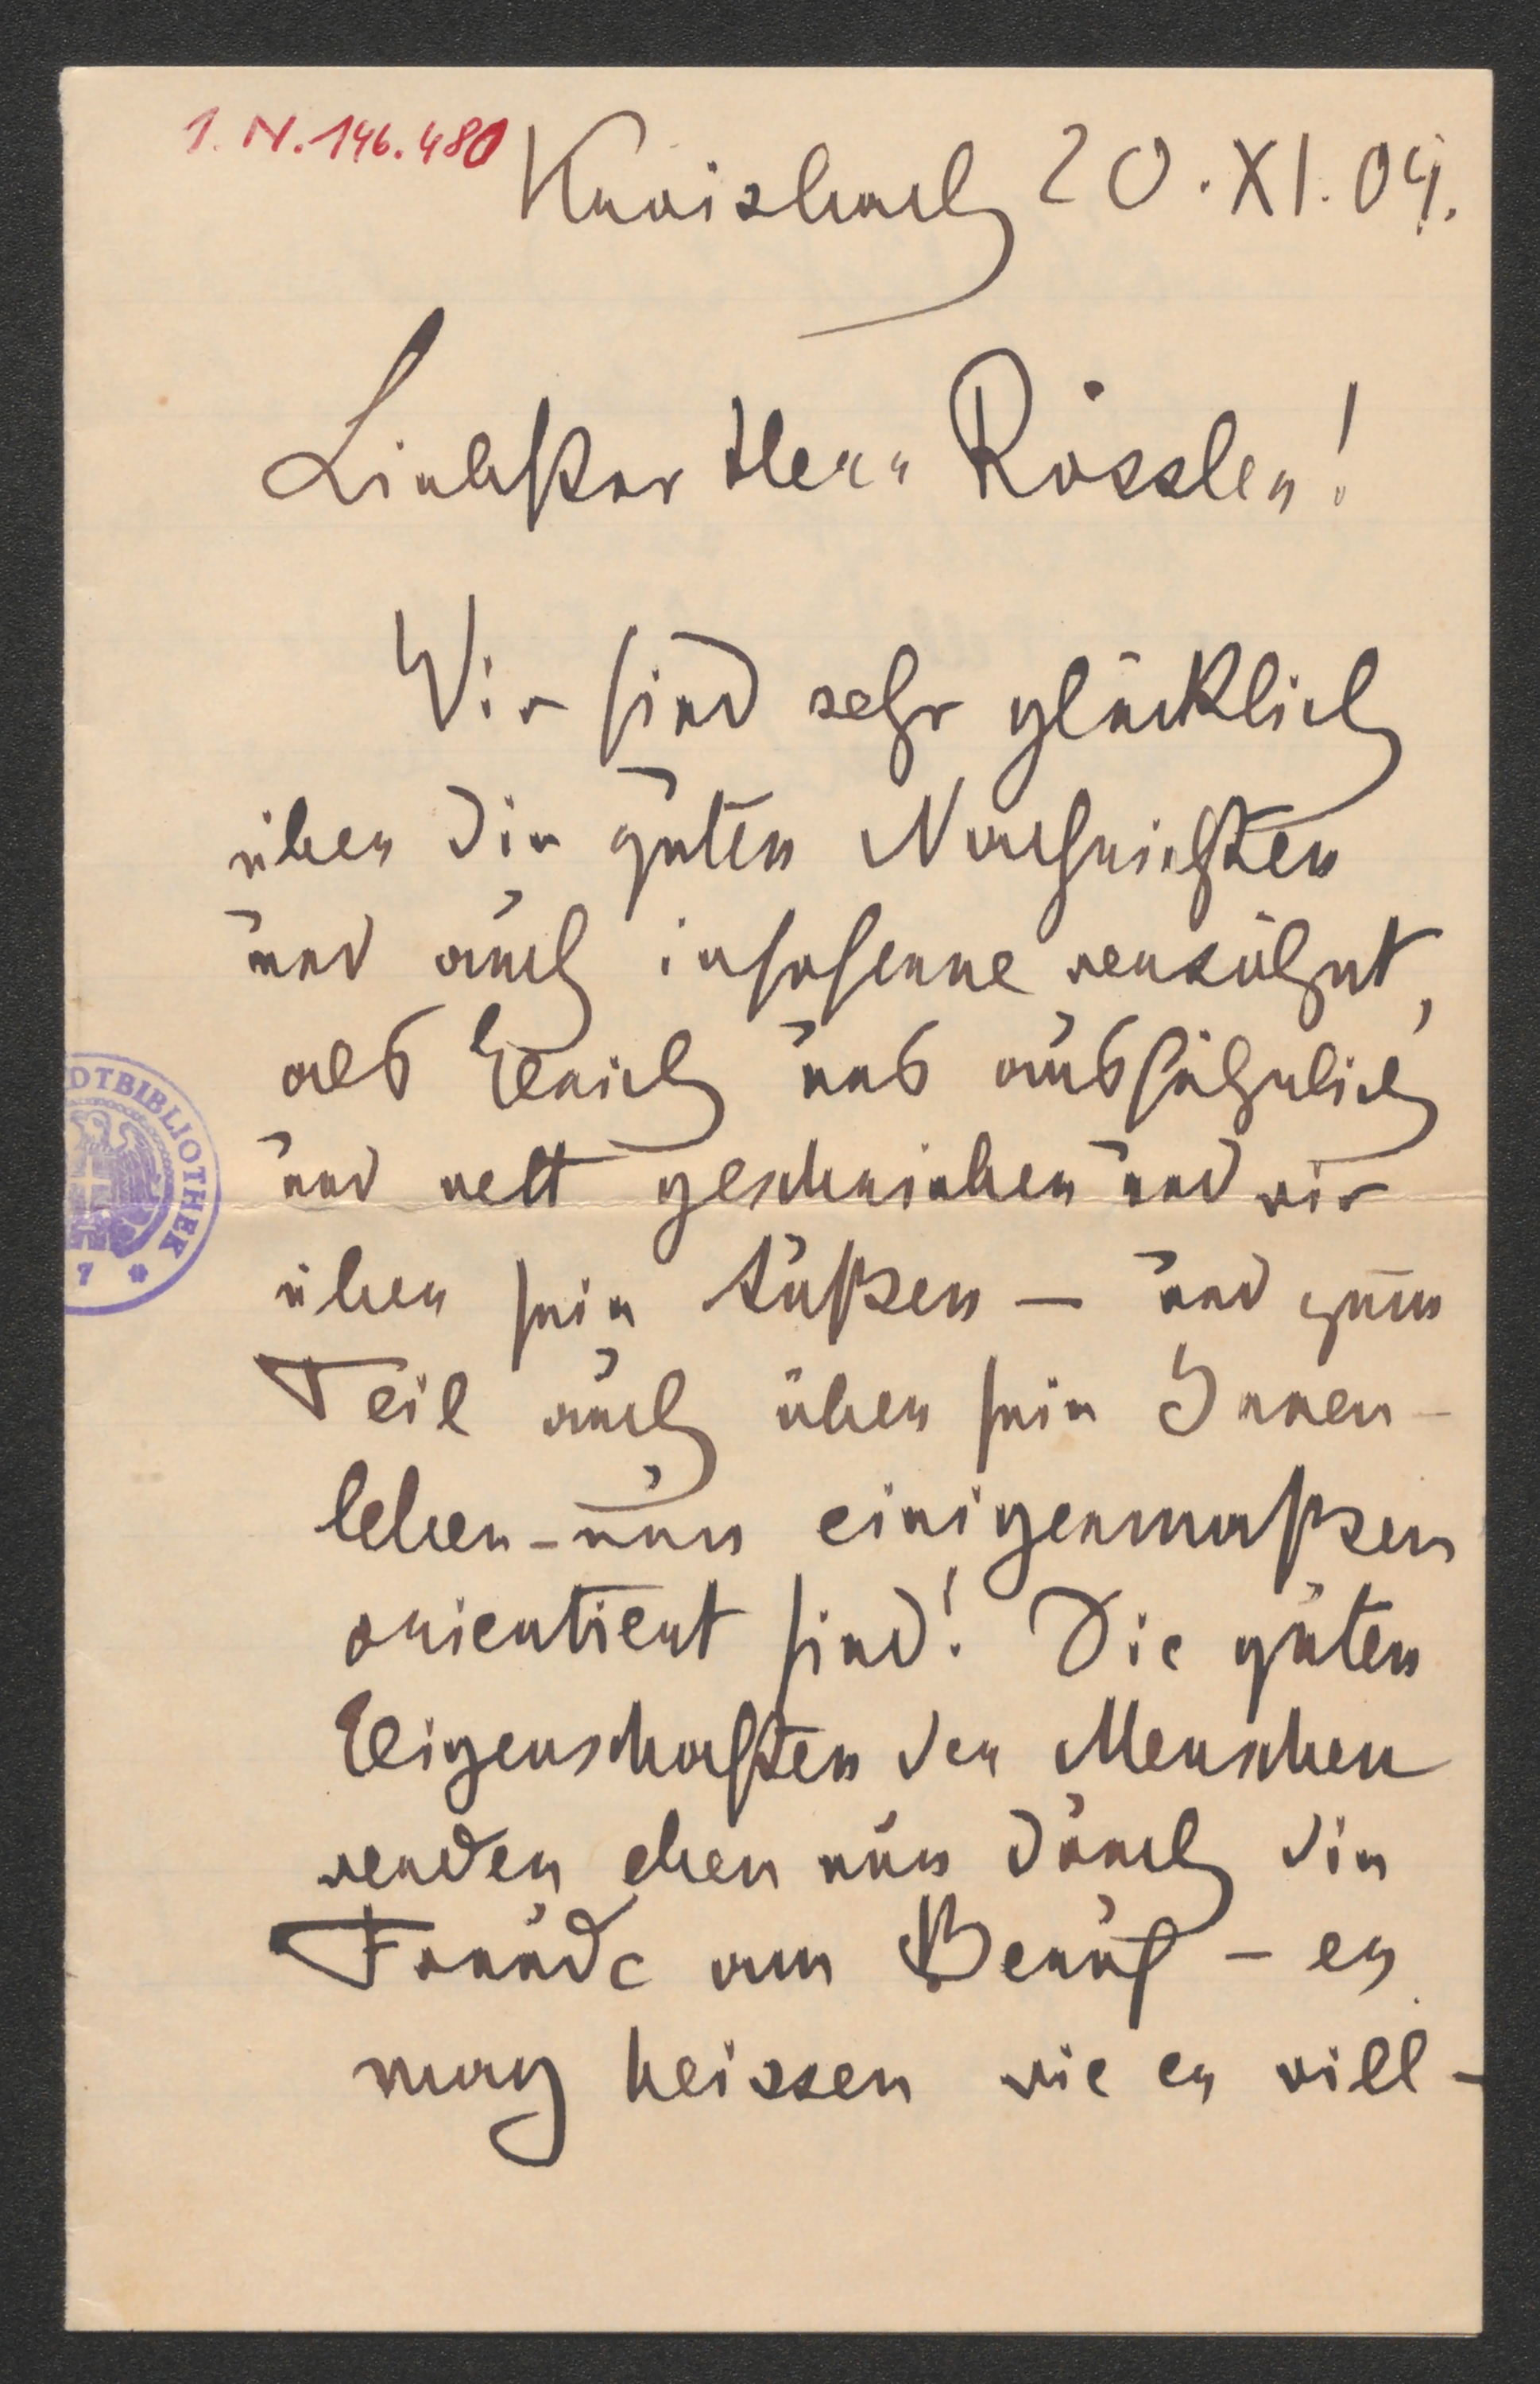 I. N. 146.480
Kraisbach 20. XI. 04.
Liebster Herr Rössler!
Wir sind sehr glücklich
über die guten Nachrichten
und auch insoferne versöhnt,
als Erich uns ausführlich
und nett geschrieben und wir
über sein Äußeres — und zum
Teil auch über sein Innen-
leben - nun einigermaßen
orientiert sind! Die guten
Eigenschaften der Menschen
werden eben nur durch die
Freude am Beruf — er
mag heissen wie er will —
DTBIBLIOTHEK
7 *